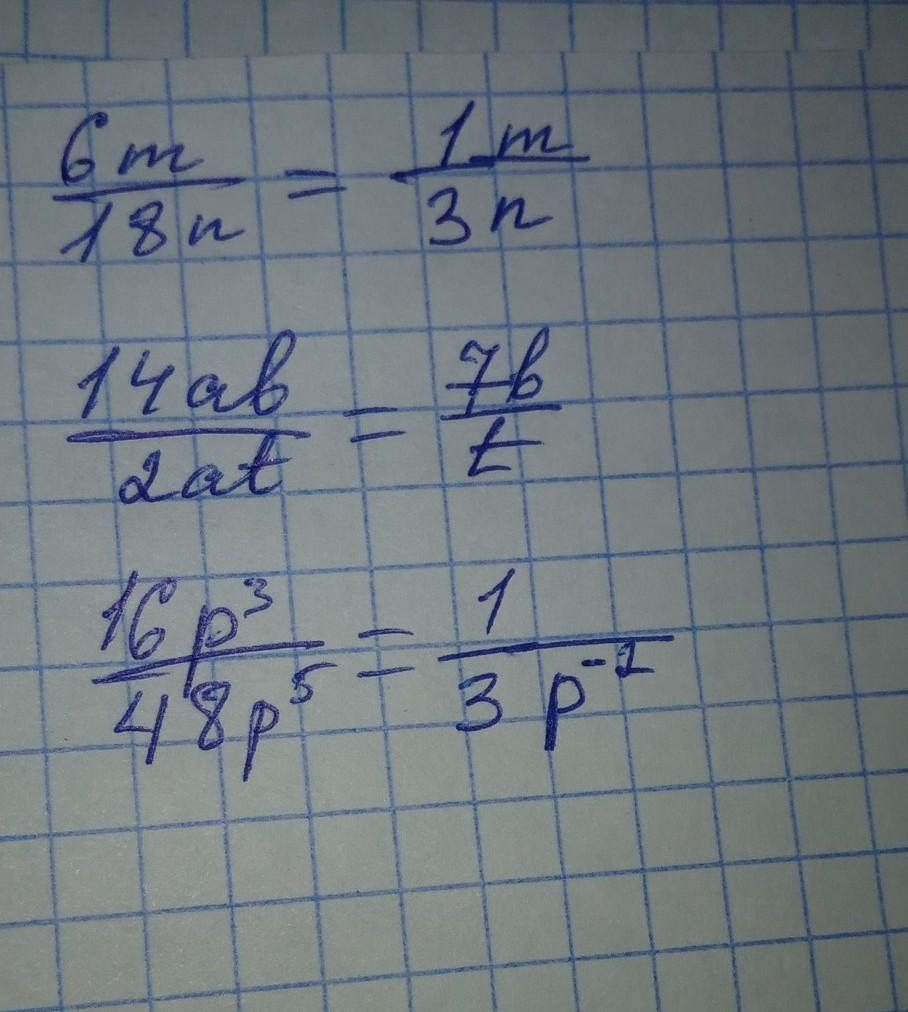 6m/18n = 1m/3n
14ab/2at = 7b/t
16p³/48p⁵ = 1/3p⁻²